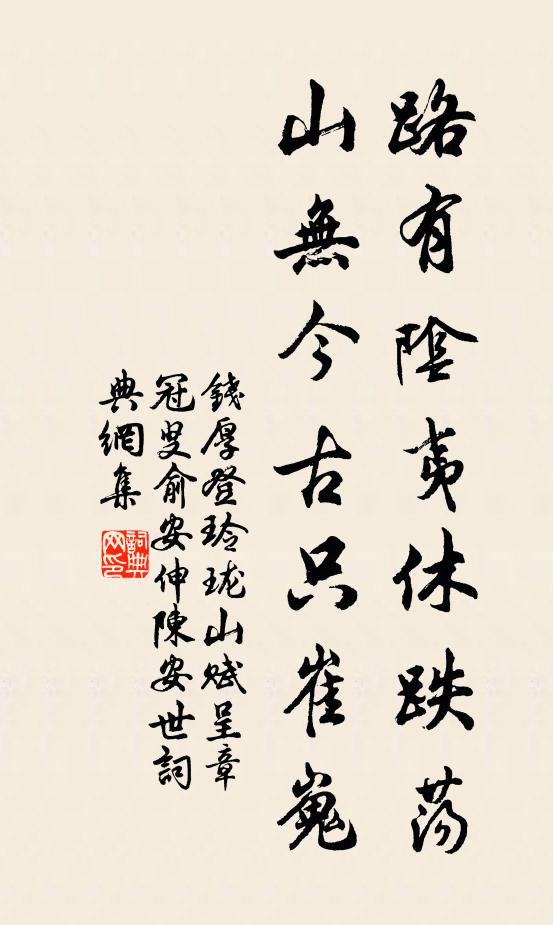 路有陰夷休跌蕩
山無今古只崔嵬
錢厚登玲瓏山賦呈章
冠叟俞安伸陳安世詞
典網集
詞典
网印